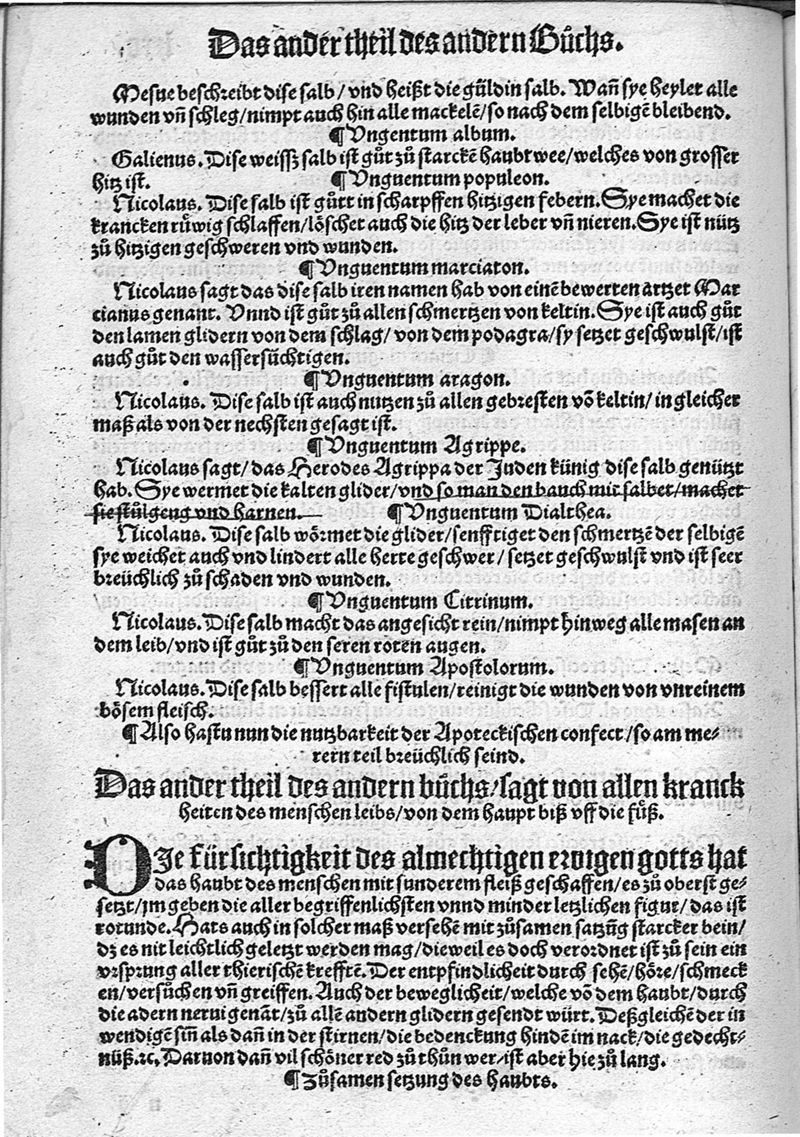 Das ander theil des andern Bůchs.
Mesue beschreibt dise salb / vnd heißt die gůldin salb. Wañ sye heylet alle
wunden vñ schleg / nimpt auch hin alle mackelẽ / so nach dem selbigẽ bleibend.
¶ Vngentum album.
Galienus. Dise weissz salb ist gůt zů starckẽ haubtwee / welches von grosser
hitz ist. ¶ Vnguentum populeon.
Nicolaus. Dise salb ist gůtt in scharpffen hitzigen febern. Sye machet die
krancken rüwig schlaffen / löschet auch die hitz der leber vñ nieren. Sye ist nütz
zů hitzigen geschweren vnd wunden.
¶ Vnguentum marciaton.
Nicolaus sagt das dise salb iren namen hab von einẽ bewerten artzet Mar
cianus genant. Vnnd ist gůt zů allen schmertzen von keltin. Sye ist auch gůt
den lamen glidern von dem schlag / von dem podagra / sy setzet geschwulst / ist
auch gůt den wassersüchtigen.
¶ Vnguentum aragon.
Nicolaus. Dise salb ist auch nutzen zů allen gebresten võ keltin / in gleicher
maß als von der nechsten gesagt ist.
¶ Vnguentum Agrippe.
Nicolaus sagt / das Herodes Agrippa der Juden künig dise salb genützt
hab. Sye wermet die kalten glider / vnd so man den bauch mit salbet / machet
sie stůlgeng vnd harnen. ¶ Vnguentum Dialthea.
Nicolaus. Dise salb wörmet die glider / senfftiget den schmertzẽ der selbigẽ
sye weichet auch vnd lindert alle herte geschwer / setzet geschwulst vnd ist seer
breüchlich zů schaden vnd wunden.
¶ Vnguentum Citrinum.
Nicolaus. Dise salb macht das angesicht rein / nimpt hinweg alle masen an
dem leib / vnd ist gůt zů den seren roten augen.
¶ Vnguentum Apostolorum.
Nicolaus. Dise salb bessert alle fistulen / reinigt die wunden von vnreinem
bösem fleisch.
¶ Also hastu nun die nutzbarkeit der Apoteckischen confect / so am me-
rern teil breüchlich seind.
Das ander theil des andern bůchs / sagt von allen kranck
heiten des menschen leibs / von dem haupt biß vff die füß.
DJe fürsichtigkeit des almechtigen ewigen gotts hat
das haubt des menschen mit sunderem fleiß geschaffen / es zů oberst ge-
setzt / jm geben die aller begriffenlichsten vnnd minder letzlichen figur / das ist
rotunde. Hats auch in solcher maß versehẽ mit zůsamen satzũg starcker bein /
dz es nit leichtlich geletzt werden mag / dieweil es doch verordnet ist zů sein ein
vrsprung aller thierischẽ krefftẽ. Der entpfindlicheit durch sehẽ / höre / schmeck
en / versůchen vñ greiffen. Auch der beweglicheit / welche võ dem haubt / durch
die adern nerui genãt / zů allẽ andern glidern gesendt würt. Deßgleichẽ der in
wendigẽ siñ als dañ in der stirnen / die bedenckung hindẽ im nack / die gedecht-
nüß. ꝛc. Daruon dañ vil schöner red zů thůn wer / ist aber hie zů lang.
¶ Zůsamen setzung des haubts.